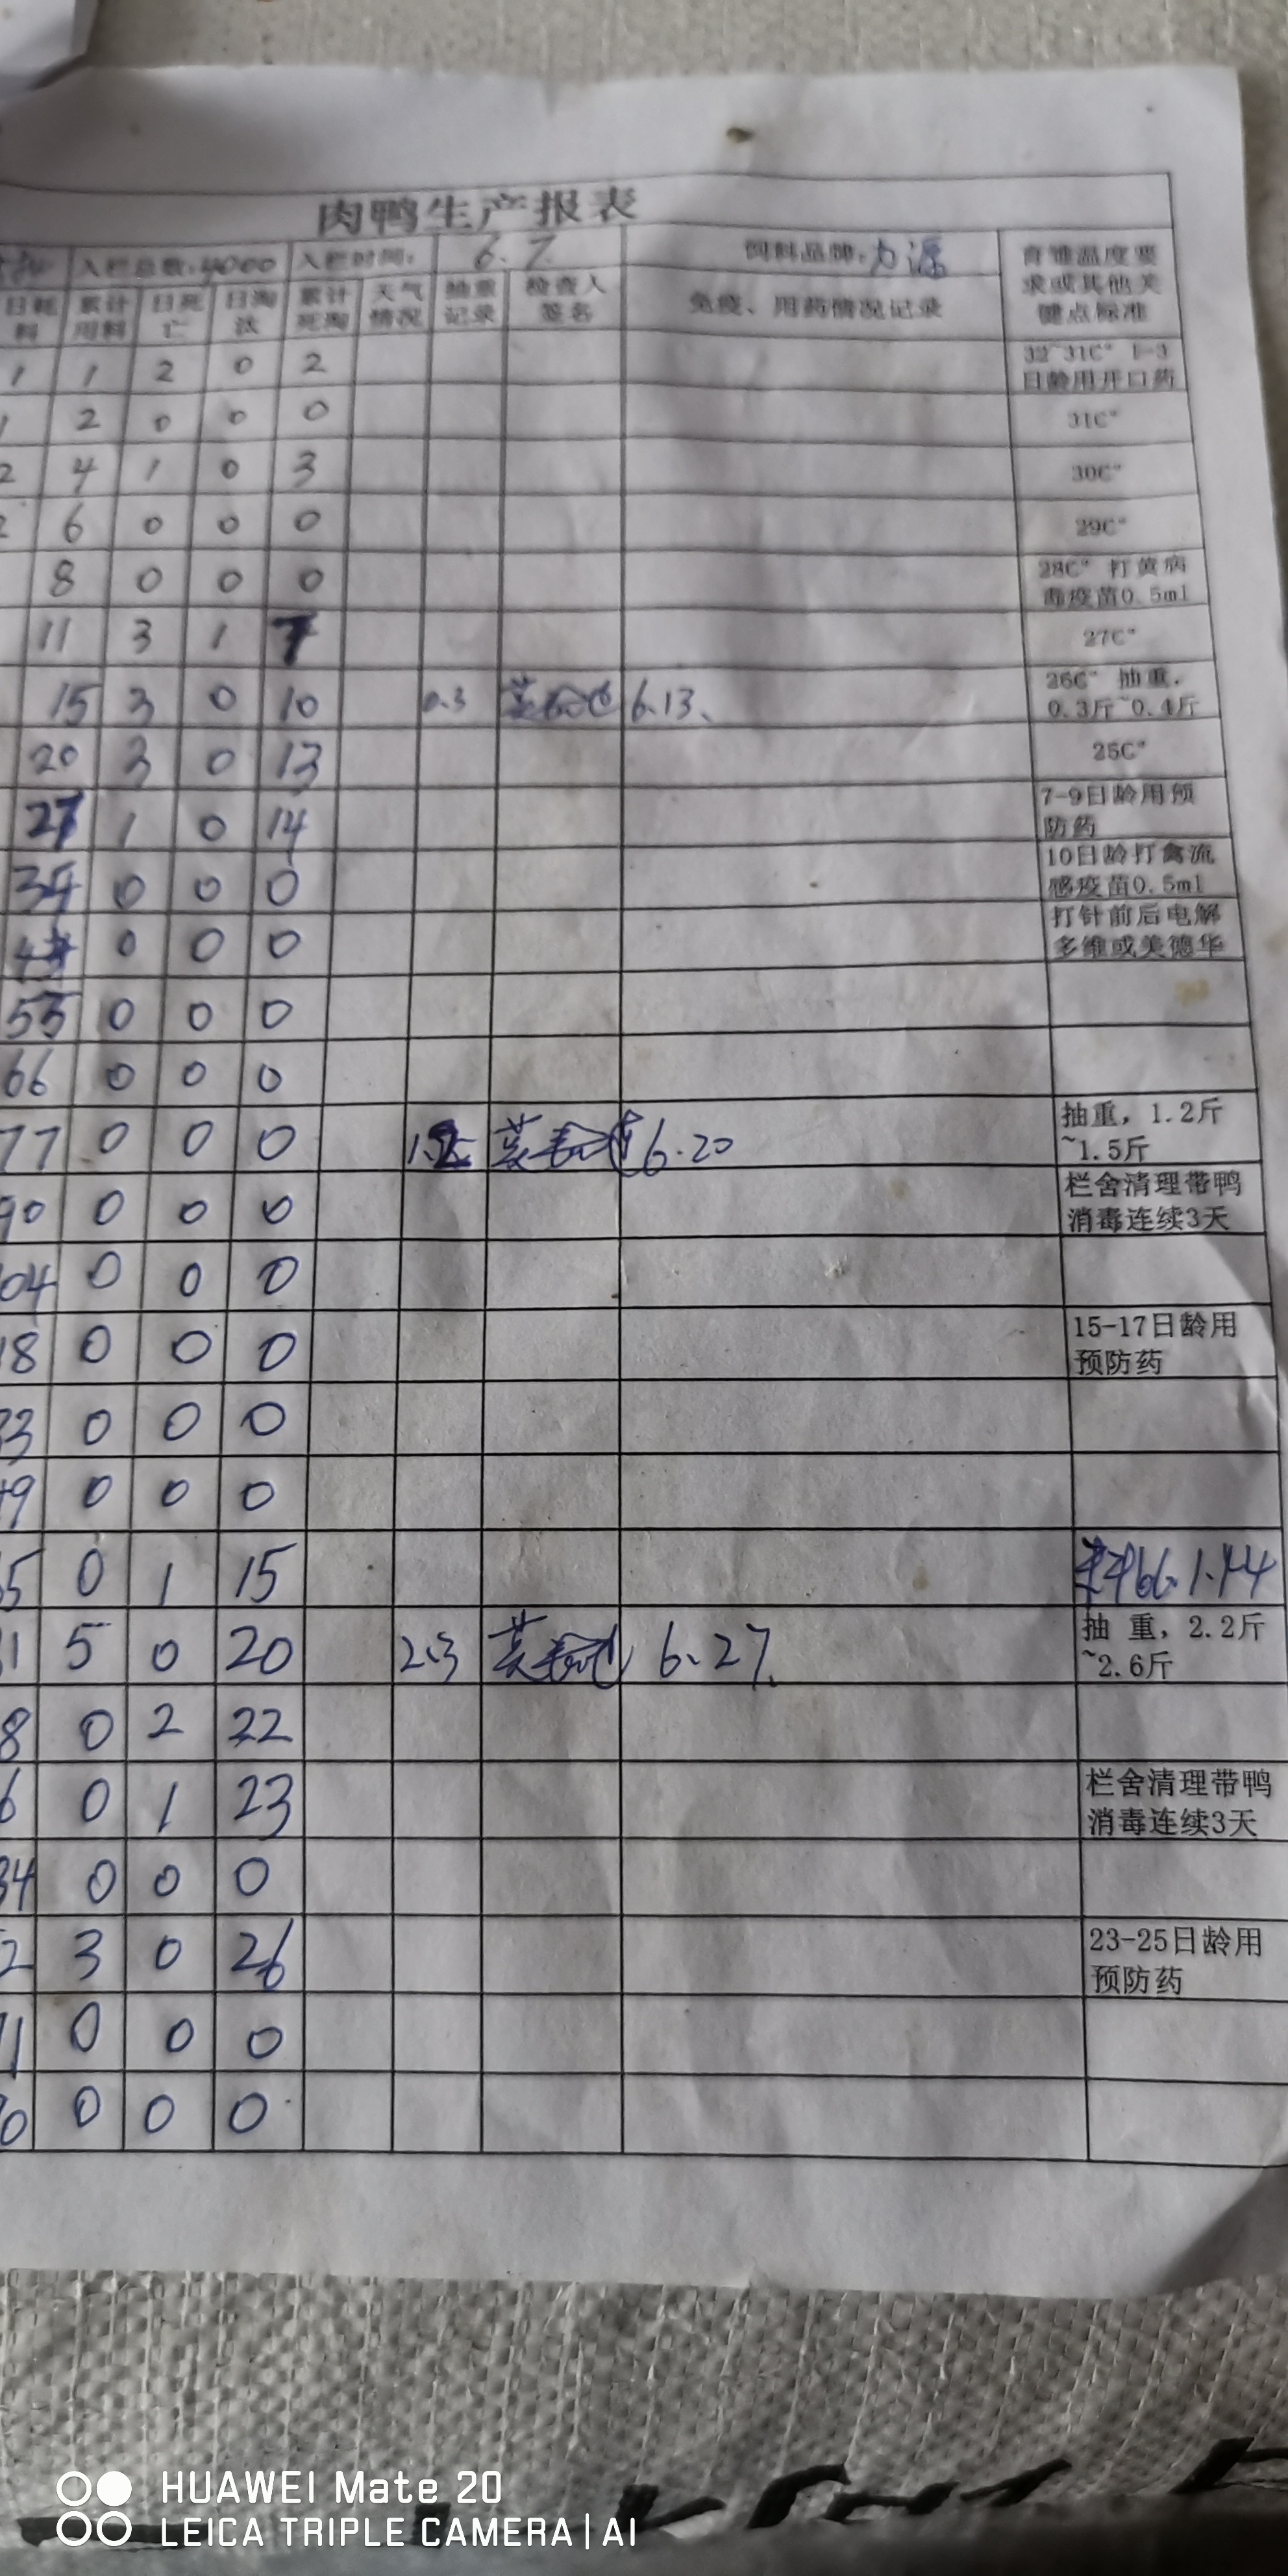 肉鸭生产报表
入栏总数:4000 入栏时间: 6.7. 饲料品牌:力源 育雏温度要求或其他关键点标准
日耗料 累计用料 日死亡 日淘汰 累计死淘 天气情况 抽重记录 检查人签名 免疫、用药情况记录
1 1 2 0 2 32~31C° 1-3日龄用开口药
1 2 0 0 0 31C°
2 4 1 0 3 30C°
2 6 0 0 0 29C°
8 0 0 0 28C° 打黄病毒疫苗0.5ml
11 3 1 7 27C°
15 3 0 10 0.3 6.13、 26C° 抽重,0.3斤~0.4斤
20 3 0 13 25C°
27 1 0 14 7-9日龄用预防药
34 0 0 0 10日龄打禽流感疫苗0.5ml
0 0 0 打针前后电解多维或美德华
55 0 0 0
66 0 0 0
77 0 0 0 6.20 抽重,1.2斤~1.5斤
90 0 0 0 栏舍清理带鸭消毒连续3天
04 0 0 0
18 0 0 0 15-17日龄用预防药
33 0 0 0
49 0 0 0
5 0 1 15 1.44
1 5 0 20 2.3 6.27. 抽 重,2.2斤~2.6斤
8 0 2 22
6 0 1 23 栏舍清理带鸭消毒连续3天
34 0 0 0
2 3 0 26 23-25日龄用预防药
1 0 0 0
0 0 0 0
HUAWEI Mate 20
LEICA TRIPLE CAMERA | AI